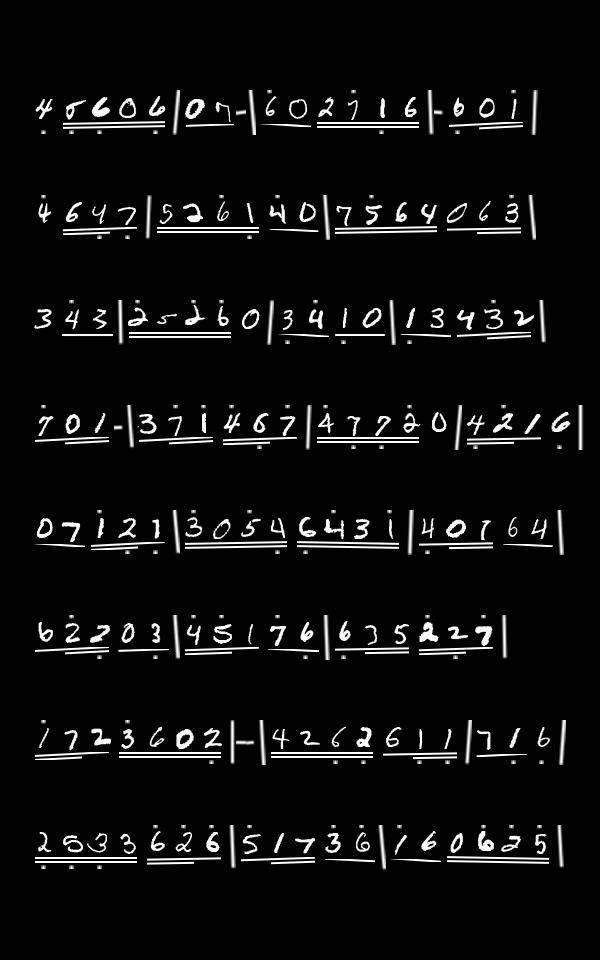 45606|07-|602716-|601
4647|526140|7564063
343|25260|3410|13432
701-|371467|47720|4216
07121|30546431|40764
62203|45176|635227
1723602|-|4262611|716
2533626|51736|160625